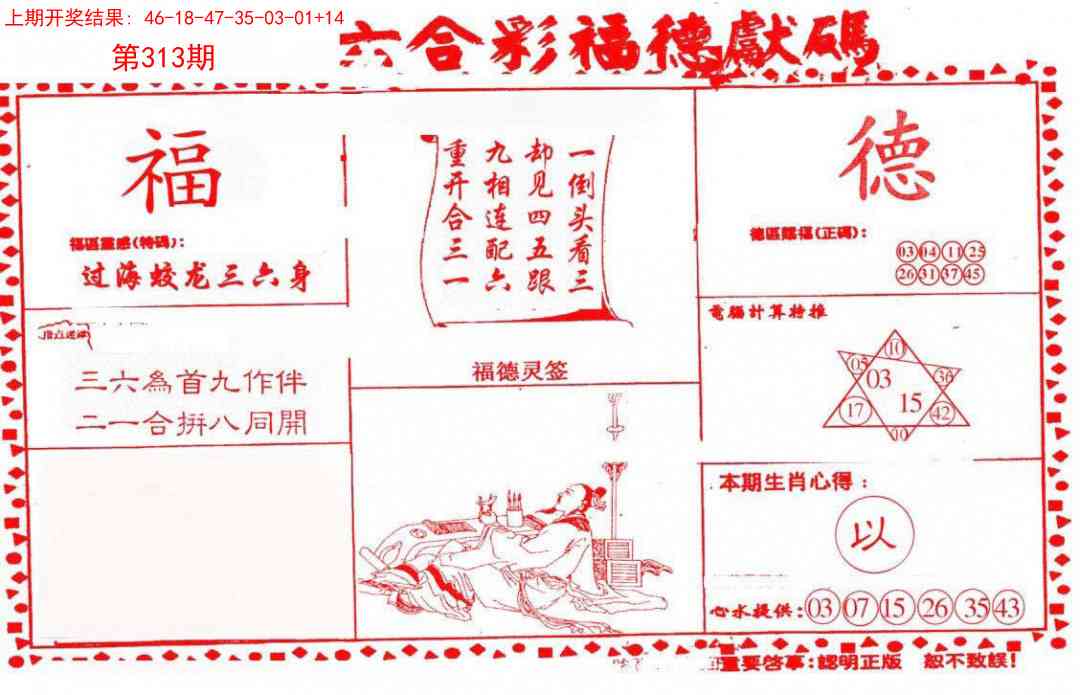 上期开奖结果: 46-18-47-35-03-01+14
第313期
六合彩福德獻碼
福
福區靈感(特碼):
过海蛟龙三六身
三六為首九作伴
二一合拼八同開
一倒头看三
却见四五跟
九相连配六
重开合三一
福德灵签
德
德區賜福(正碼):
03 04 11 25
26 31 37 45
電腦計算特推
10
05 36
03
15
17 42
10
本期生肖心得:
以
心水提供: 03 07 15 26 35 43
重要啓事:認明正版 恕不致誤!